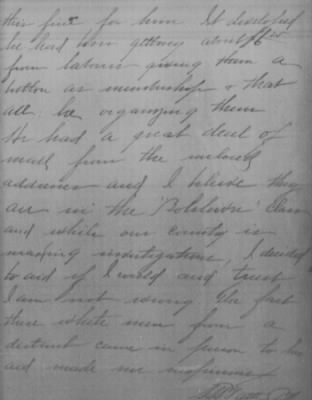 this fine for him. It developed
he had been getting about $6.00
from laborers giving them a
button as membership & that
all be organizing them
He had a great deal of
mail from the inclosed
addresses and I believe they
are in the 'Bolshevic' Class
and while our county is
making investigations, I decided
to aid if I could and trust
I am not wrong. The fact
three white men from a
distance came in person to his
aid made me suspicious